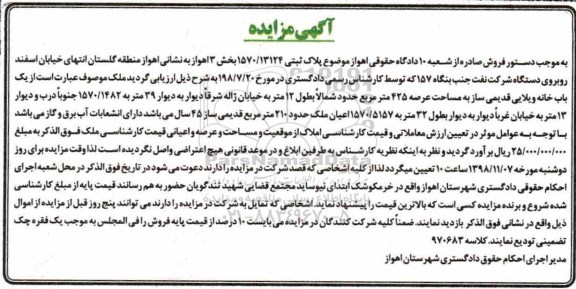 آگهی مزایده
به موجب دستور فروش صادره از شعبه ۱۰ دادگاه حقوقی اهواز موضوع پلاک ثبتی ۱۵۷۰/۱۳۱۲۴ بخش ۳ اهواز به نشانی اهواز منطقه گلستان انتهای خیابان اسفند
روبروی دستگاه شرکت نفت جنب بنگاه ۱۵۷ که توسط کارشناس رسمی دادگستری در مورخ ۱۹۸/۷/۲۰ به شرح ذیل ارزیابی گردید ملک موصوف عبارت است از یک
باب خانه ویلایی قدیمی ساز به مساحت عرصه ۴۲۵ متر مربع حدود شمالاً بطول ۱۲ متر به خیابان ژاله شرقاً دیوار به دیوار ۳۹ متر به ۱۵۷۰/۱۴۸۲ جنوباً درب و دیوار
۱۳ متر به خیابان غرباً دیوار به دیوار بطول ۳۲ متر به ۱۵۷۰/۵۱۵۷ اعیان ملک حدود ۲۱۰ متر مربع قدیمی ساز ۴۵ سال می باشد دارای انشعابات آب برق و گاز می باشد
با توجه به عوامل موثر در تعیین ارزش معاملاتی و قیمت کارشناسی املاک از موقعیت و مساحت و عرصه و اعیانی قیمت کارشناسی ملک فوق الذکر به مبلغ
۲۵/۰۰۰/۰۰۰/۰۰۰ ریال برآورد گردید و نظر به اینکه نظریه کارشناس به طرفین ابلاغ و در موعد قانونی هیچ اعتراضی واصل نگردیده است لذا وقت مزایده برای روز
دوشنبه مورخه ۱۳۹۸/۱۱/۰۷ ساعت ۱۰ تعیین میگردد لذا از کلیه اشخاصی که قصد شرکت در مزایده را دارند دعوت می شود در تاریخ فوق الذکر در محل شعبه اجرای
احکام حقوقی دادگستری شهرستان اهواز واقع در خرمکوشک ابتدای نیوساید مجتمع قضایی شهید تندگویان حضور به هم رسانند قیمت پایه از مبلغ کارشناسی
شده شروع و برنده مزایده کسی است که بالاترین قیمت را پیشنهاد نماید. اشخاصی که تمایل به شرکت در مزایده را دارند می توانند پنج روز قبل از مزایده از اموال
ذیل واقع در نشانی فوق الذکر بازدید نمایند. ضمناً کلیه شرکت کنندگان در مزایده می بایست ۱۰ درصد از قیمت پایه فروش را فی المجلس به موجب یک فقره چک
تضمینی تودیع نمایند. کلاسه ۹۷۰۶۸۳
مدیر اجرای احکام حقوق دادگستری شهرستان اهواز